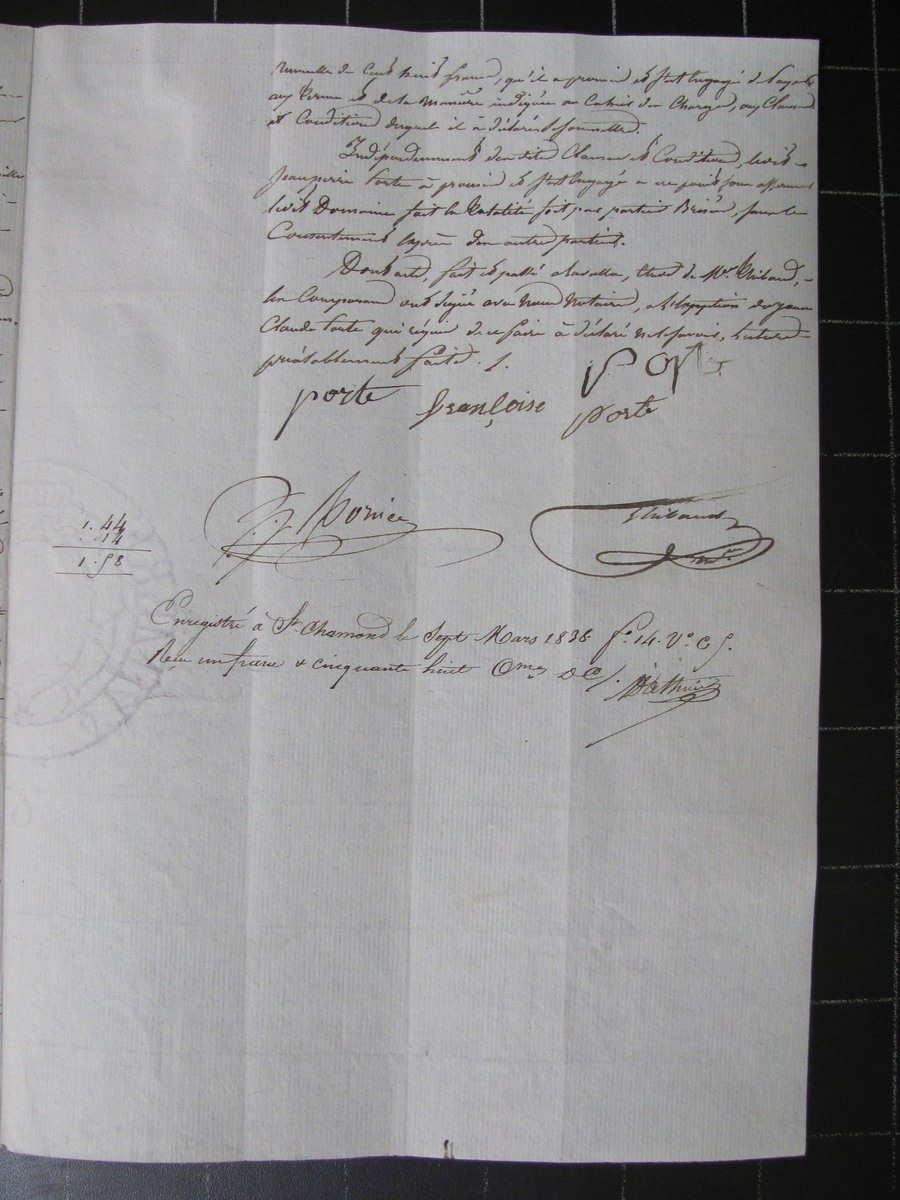 nuelle de Cent huit francs, qu'il a promis et s'est engagé de Payer
aux termes et de la Manière indiquée au Cahier des Charges, aux Clauses
et Conditions duquel il a déclaré
Indépendamment des dites Clauses et Conditions, ledit
Jean pierre Porte à promis et s'est engagé a ne point sous affermer
ledit Domaine soit en totalité soit par parties Brisées, sans le
Consentement exprès des autres parties.
Dont acte, fait et passé a Lavalla, de Mr. Thibaud,
Les Comparans ont signé avec Nous Notaire, a l'exception de
Claude Porte qui requis de ce faire à déclaré ne le savoir, Lecture
préalablement faite ./.
porte françoise porte
porte
Thibaud
1. 44
. 14
1. 58
Enregistré à St Chamond le Sept Mars 1836 fo. 14. Vo. C 5.
Reçu un franc & cinquante huit Cmes DC/.